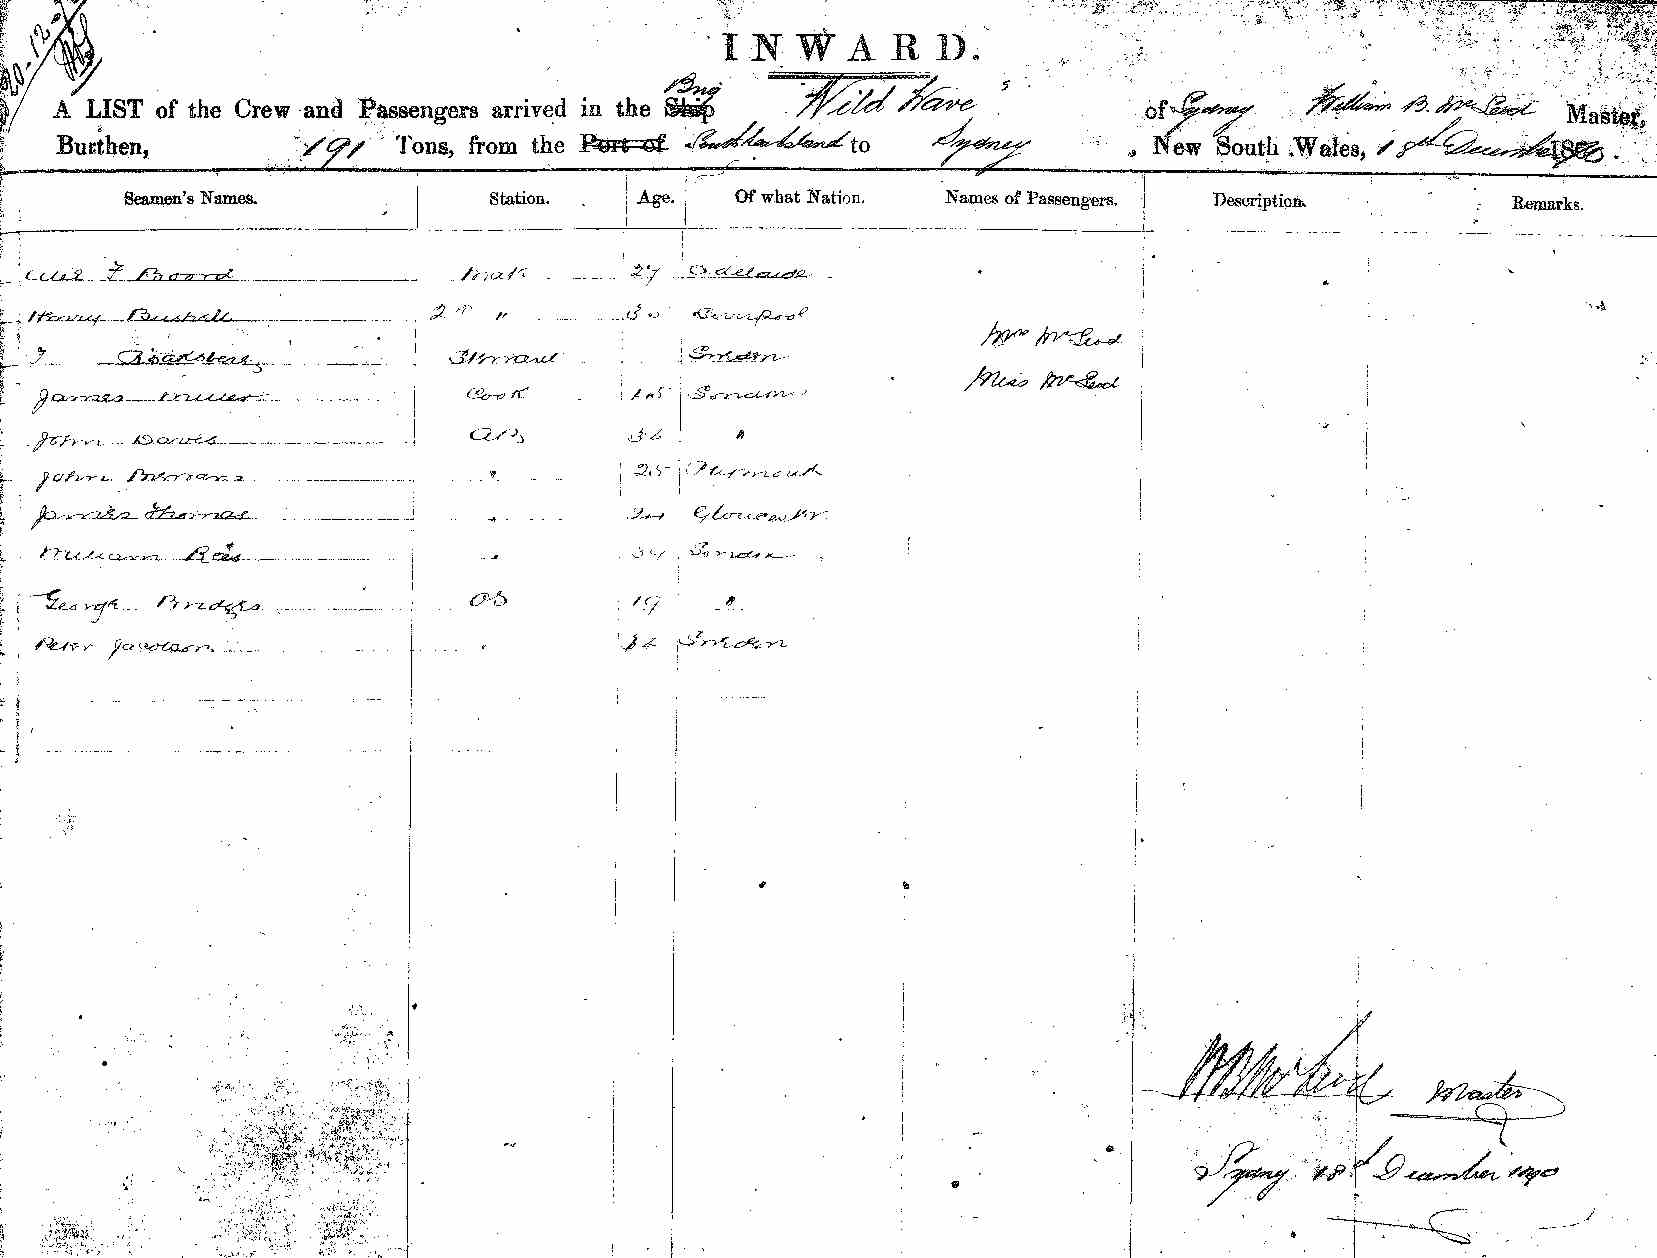 20-12-
INWARD.
A LIST of the Crew and Passengers arrived in the Ship Brig "Wild Wave" of Sydney William B. McLeod Master,
Burthen, 191 Tons, from the Port of South Sea Island to Sydney, New South Wales, 18th December 1890.
Seamen's Names. Station. Age. Of what Nation. Names of Passengers. Description. Remarks.
F Board Mate 27 Adelaide
Henry Bushell 2nd " 30 Liverpool
Steward Sweden Mrs McLeod
James Miller Cook 45 London Miss McLeod
John Davis AB 36 "
John " 25
James Thomas " 24 Gloucester
William " 34 London
George Bridges OS 19 "
Peter Jacobson " Sweden
WB McLeod Master
Sydney 18th December 1890